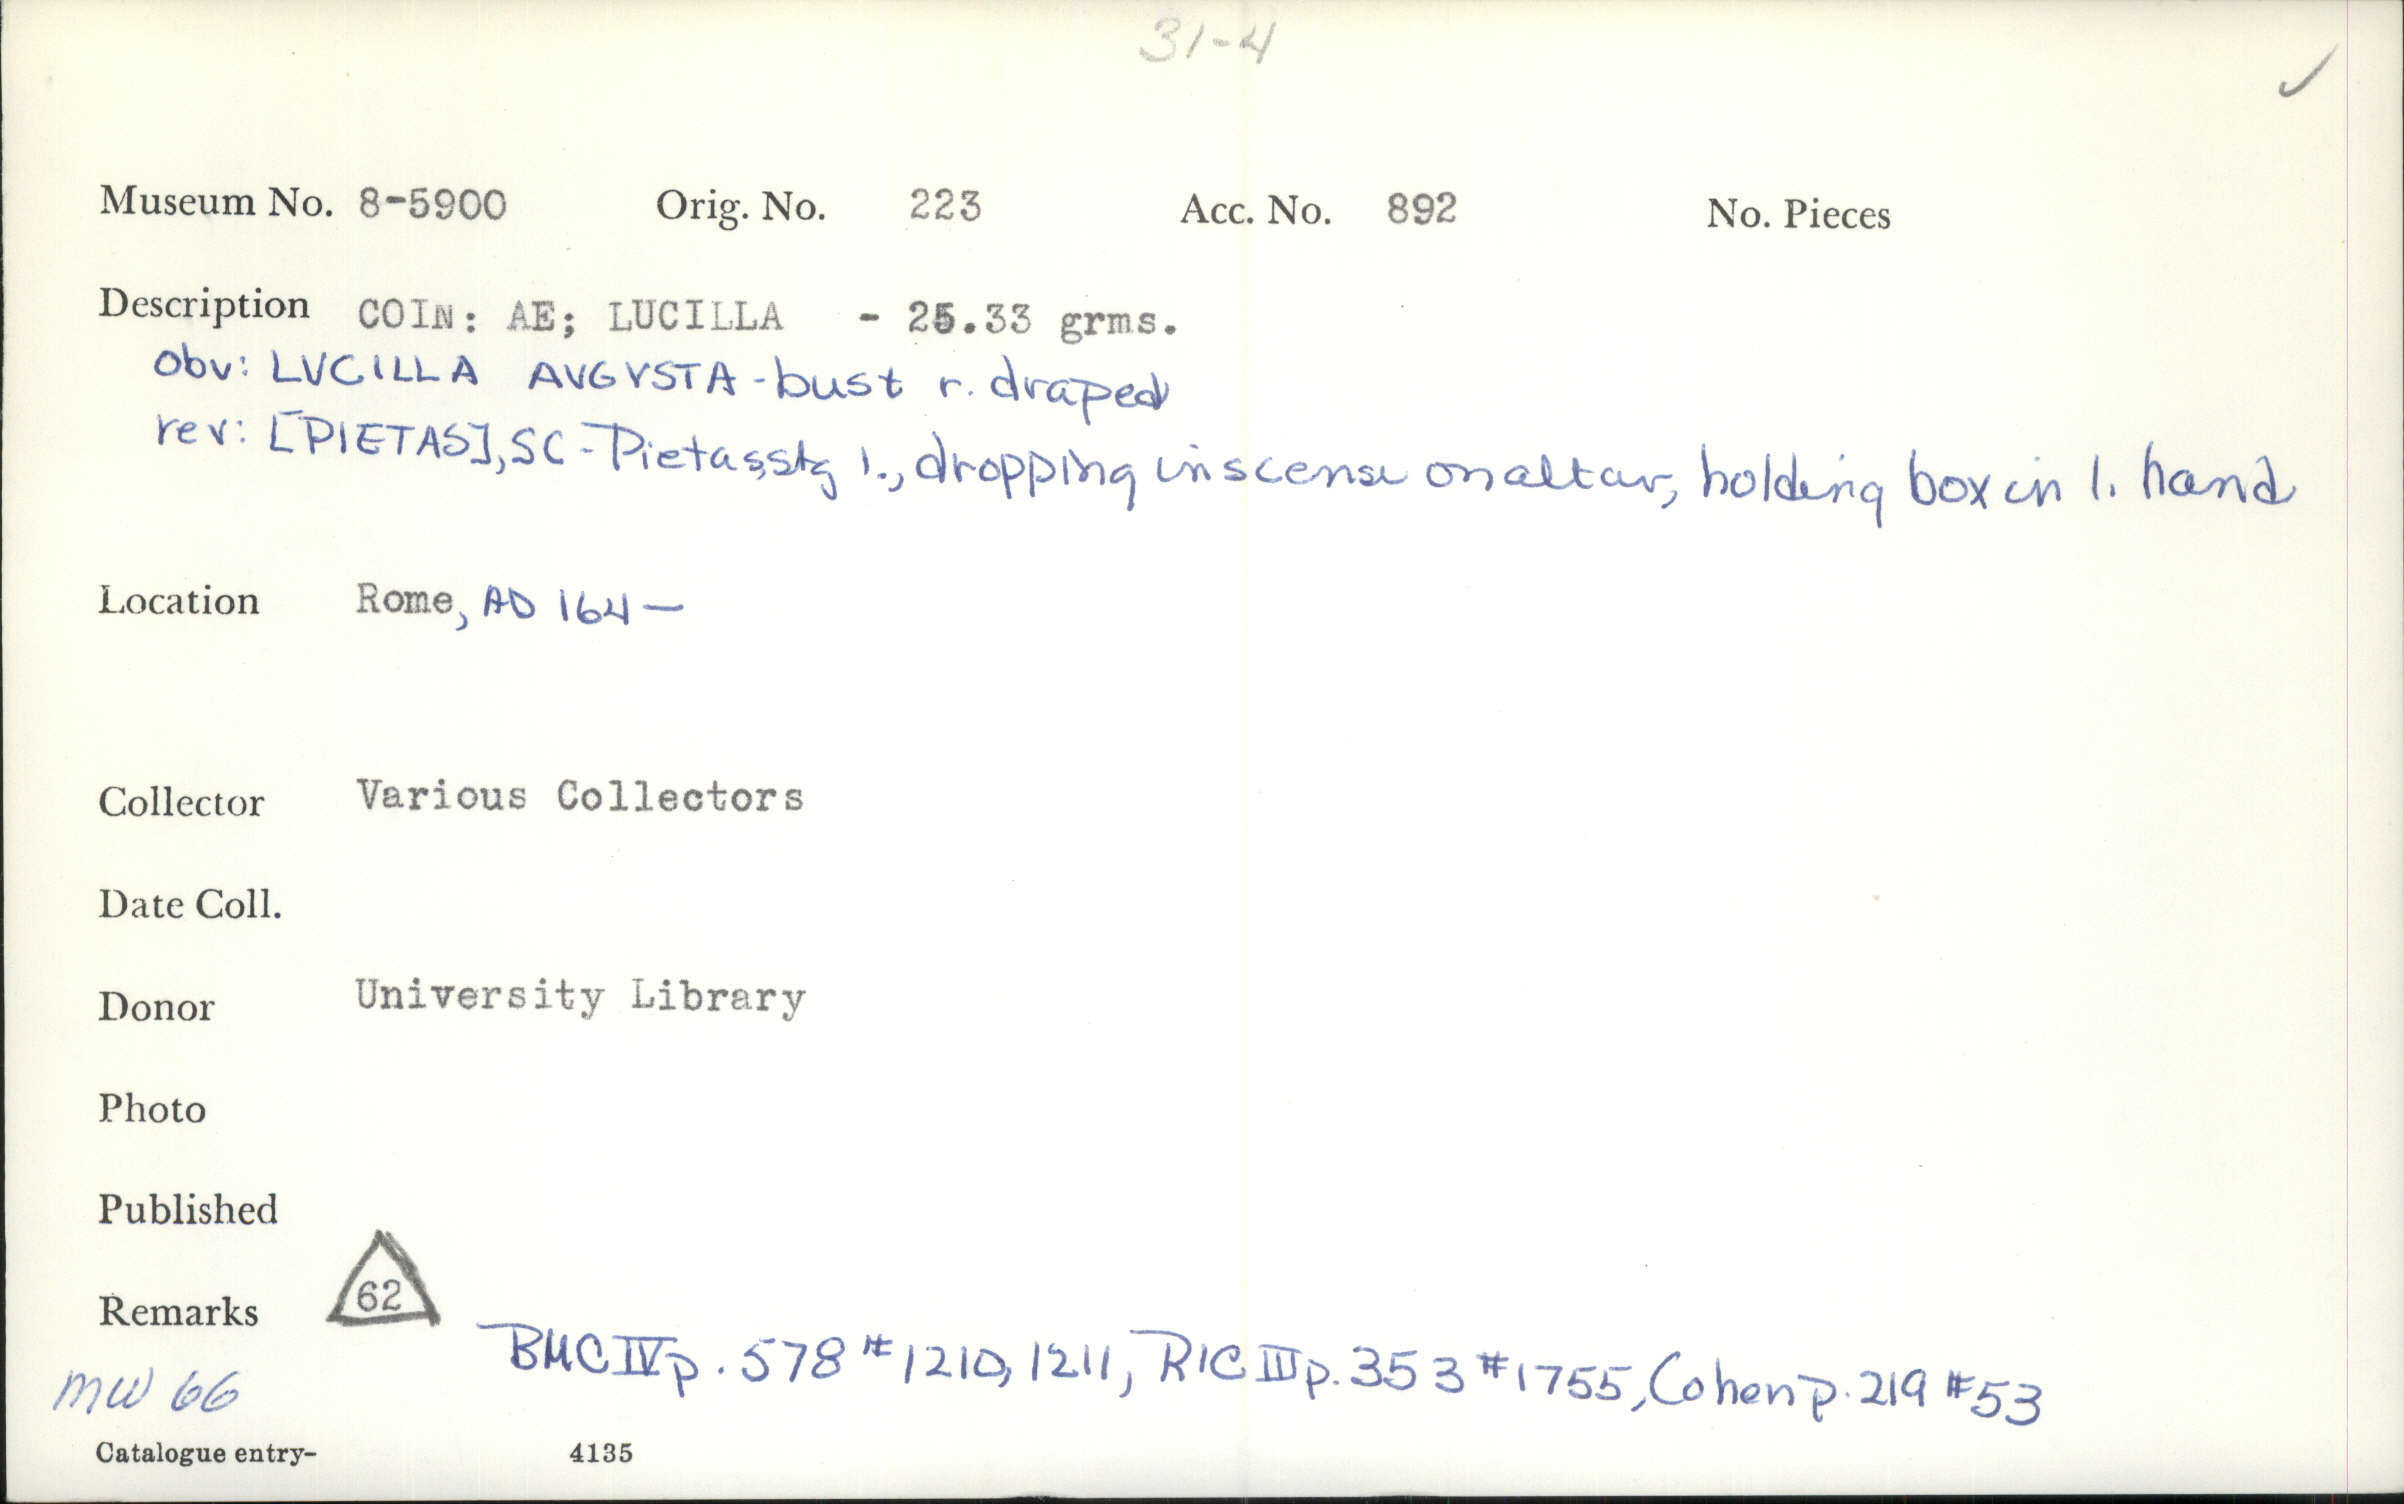 31-4
Museum No. 8-5900 Orig. No. 223 Acc. No. 892 No. Pieces
Description COIN: AE; LUCILLA - 25.33 grms.
Obv: LVCILLA AVGVSTA - bust r. draped
rev: [PIETAS], SC - Pietas, stg l., dropping inscense on altar, holding box in l. hand
Location Rome, AD 164 —
Collector Various Collectors
Date Coll.
Donor University Library
Photo
Published
Remarks 62
BMC IV p. 578 # 1210, 1211, RIC III p. 353 # 1755, Cohen p. 219 # 53
MW 66
Catalogue entry- 4135